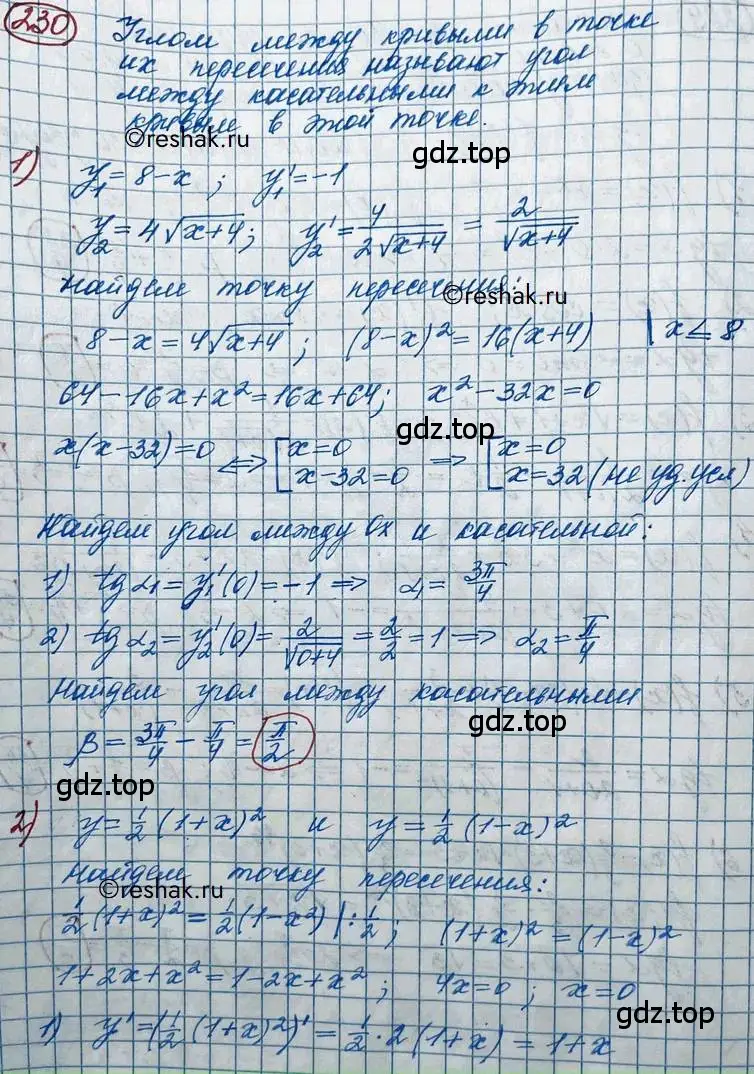 230
Углом между кривыми в точке
их пересечения называют угол
между касательными к этим
кривым в этой точке.
©reshak.ru
gdz.top
1)
y₁=8-x ; y₁'=-1
y₂=4√(x+4); y₂'=4/(2√(x+4)) = 2/√(x+4)
Найдем точку пересечения:
©reshak.ru
8-x=4√(x+4) ; (8-x)²=16(x+4) | x≤8
64-16x+x²=16x+64; x²-32x=0
gdz.top
x(x-32)=0 ⟺ [x=0 ⇒ [x=0
x-32=0 x=32 (не уд.усл)
Найдем угол между Ox и касательной:
1) tg α₁=y₁'(0)=-1 ⇒ α₁= 3π/4
2) tg α₂=y₂'(0)= 2/√(0+4) = 2/2 = 1 ⇒ α₂= π/4
Найдем угол между касательными
gdz.top
β= 3π/4 - π/4 = π/2
2) y= 1/2 (1+x)² и y= 1/2 (1-x)²
Найдем точку пересечения:
©reshak.ru
1/2 (1+x)²= 1/2 (1-x²) |: 1/2 ; (1+x)²=(1-x)²
1+2x+x²=1-2x+x² ; 4x=0 ; x=0
1) y'=(1/2 (1+x)²)'= 1/2 · 2(1+x) = 1+x
gdz.top